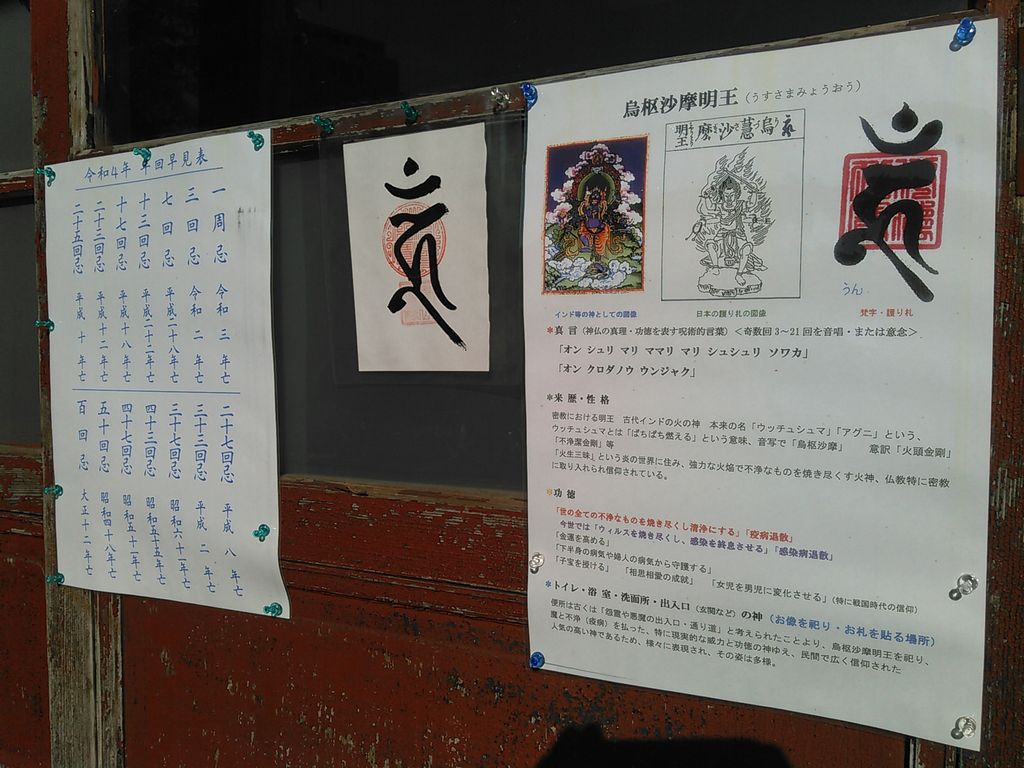 令和4年 年回早見表
一周忌 令和三年亡
三回忌 令和二年亡
七回忌 平成二十八年亡
十三回忌 平成二十二年亡
十七回忌 平成十八年亡
二十三回忌 平成十二年亡
二十五回忌 平成十年亡
二十七回忌 平成八年亡
三十三回忌 平成二年亡
三十七回忌 昭和六十一年亡
四十三回忌 昭和五十五年亡
四十七回忌 昭和五十一年亡
五十回忌 昭和四十八年亡
百回忌 大正十二年亡
烏枢沙摩明王(うすさまみょうおう)
烏蒭沙摩明王
うん
インド等の神としての図像
日本の護り札の図像
梵字・護り札
*真言(神仏の真理・功徳を表す呪術的言葉)<奇数回3~21回を音唱・または意念>
「オン シュリ マリ ママリ マリ シュシュリ ソワカ」
「オン クロダノウ ウンジャク」
*来歴・性格
密教における明王 古代インドの火の神 本来の名「ウッチュシュマ」「アグニ」という、
ウッチュシュマとは「ぱちぱち燃える」という意味、音写で「烏枢沙摩」 意訳「火頭金剛」
「不浄潔金剛」等
「火生三昧」という炎の世界に住み、強力な火焔で不浄なものを焼き尽くす火神、仏教特に密教
に取り入れられ信仰されている。
*功徳
「世の全ての不浄なものを焼き尽くし清浄にする」「疫病退散」
今世では「ウィルスを焼き尽くし、感染を終息させる」「感染病退散」
「金運を高める」
「下半身の病気や婦人の病気から守護する」
「子宝を授ける」 「相思相愛の成就」 「女児を男児に変化させる」(特に戦国時代の信仰)
*トイレ・浴室・洗面所・出入口(玄関など)の神(お像を祀り・お札を貼る場所)
便所は古くは「怨霊や悪魔の出入口・通り道」と考えられたことより、烏枢沙摩明王を祀り、
魔と不浄(疫病)を払った、特に現実的な威力と功徳の神ゆえ、民間で広く信仰された
人気の高い神であるため、様々に表現され、その姿は多様。